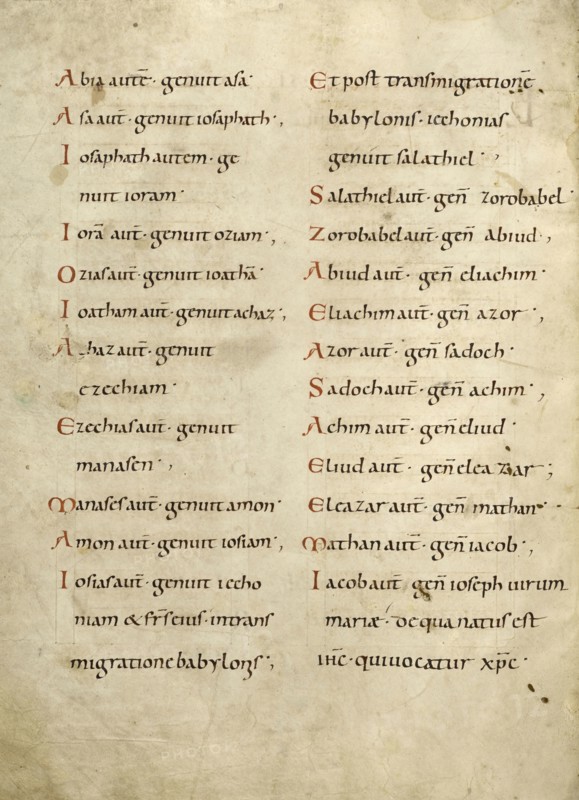 Abia autē · genuit asa ·
Asa aut̄ · genuit iosaphath ·,
Iosaphath autem · ge
nuit ioram ·
Iorā aut̄ · genuit oziam ·,
Ozias aut̄ · genuit ioathā ·
Ioatham aut̄ · genuit achaz ·,
Achaz aut̄ · genuit
ezechiam ·
Ezechias aut̄ · genuit
manasen ·,
Manases aut̄ · genuit amon ·
Amon aut̄ · genuit iosiam ·,
Iosias aut̄ · genuit iecho
niam & fr̄s eius · in trans
migratione babylonis ·,
Et post transmigrationē
babylonis · iechonias
genuit salathiel ·,
Salathiel aut̄ · gen̄ zorobabel ·
Zorobabel aut̄ · gen̄ abiud ·,
Abiud aut̄ · gen̄ eliachim ·
Eliachim aut̄ · gen̄ azor ·,
Azor aut̄ · gen̄ sadoch ·
Sadoch aut̄ · gen̄ achim ·,
Achim aut̄ · gen̄ eliud ·
Eliud aut̄ · gen̄ eleazar ·;
Eleazar aut̄ · gen̄ mathan ·
Mathan aut̄ · gen̄ iacob ·,
Iacob aut̄ gen̄ ioseph uirum
mariæ · de qua natus est
ih̄c · qui uocatur xp̄c ·